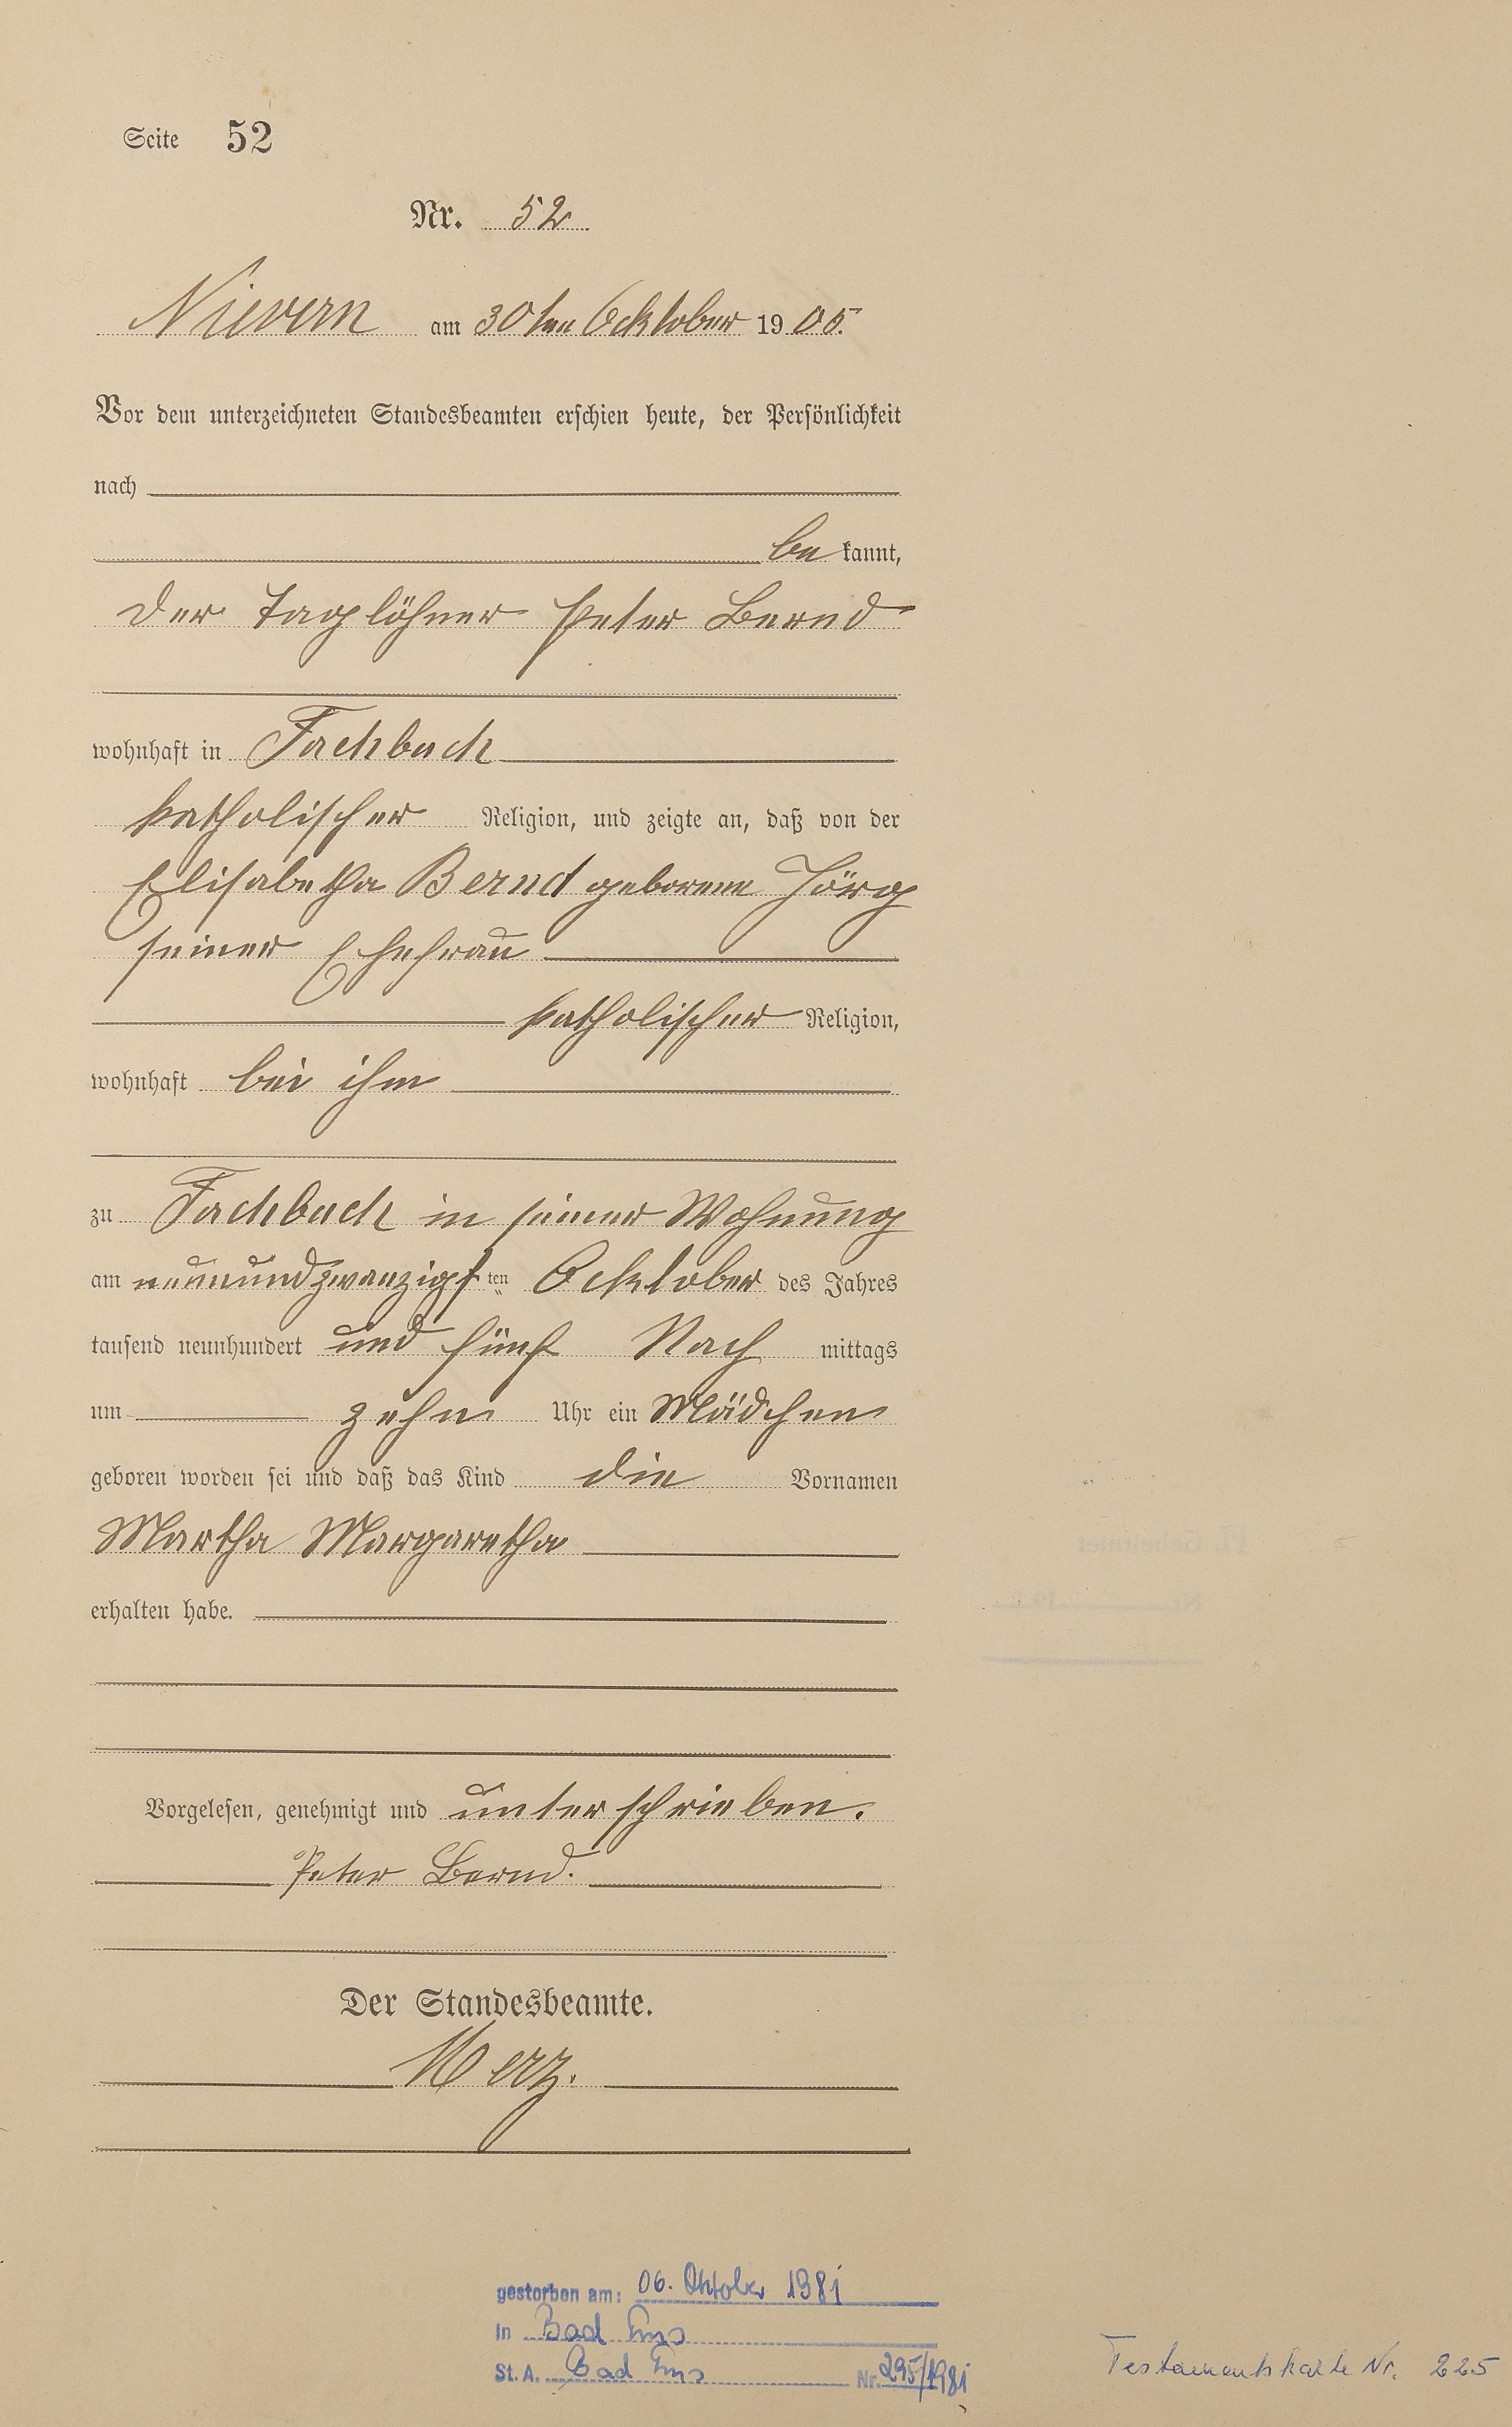 Seite 52
Nr. 52.
Nievern am 30ten Ocktober 1905.
Vor dem unterzeichneten Standesbeamten erschien heute, der Persönlichkeit
nach
be kannt,
der Taglöhner Peter Bernd
wohnhaft in Fachbach
katholischer Religion, und zeigte an, daß von der
Elisabetha Bernd geborene Jörg
seiner Ehefrau
katholischer Religion,
wohnhaft bei ihm
zu Fachbach in seiner Wohnung
am neunundzwanzigsten Ocktober des Jahres
tausend neunhundert und fünf Nach mittags
um zehn Uhr ein Mädchen
geboren worden sei und daß das Kind die Vornamen
Martha Margaretha
erhalten habe.
Vorgelesen, genehmigt und unterschrieben.
Peter Bernd.
Der Standesbeamte.
Merz.
gestorben am: 06. Oktober 1981
in Bad Ems
St. A. Bad Ems Nr. 295/1981
Testamentskarte Nr. 225